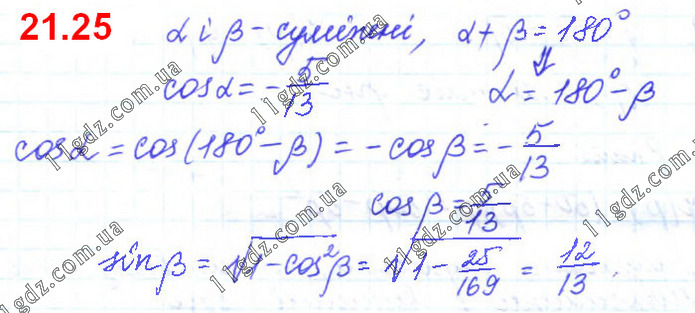 21.25 α і β – суміжні, α + β = 180°
cosα = -5/13 ⇓ α = 180° - β
cosα = cos(180° - β) = -cosβ = -5/13
cosβ = 5/13
sinβ = √(1 - cos²β) = √(1 - 25/169) = 12/13.
11gdz.com.ua
11gdz.com.ua
11gdz.com.ua
11gdz.com.ua
11gdz.com.ua
11gdz.com.ua